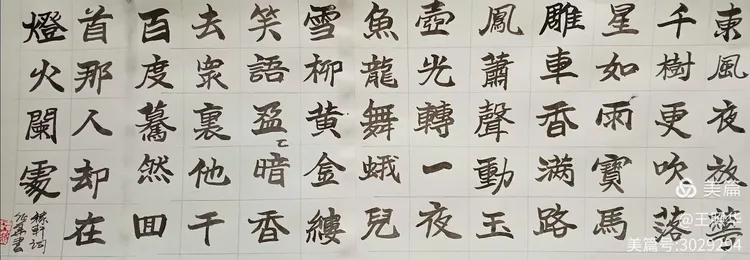 東風夜放
千樹更吹落
星如雨寶馬
雕車香满路
鳳蕭聲動玉
壺光轉一夜
魚龍舞蛾兒
雪柳黄金縷
笑語盈〻暗香
去衆裏他千
百度驀然回
首那人却在
燈火闌處
稼轩词
美篇
美篇号:3029294